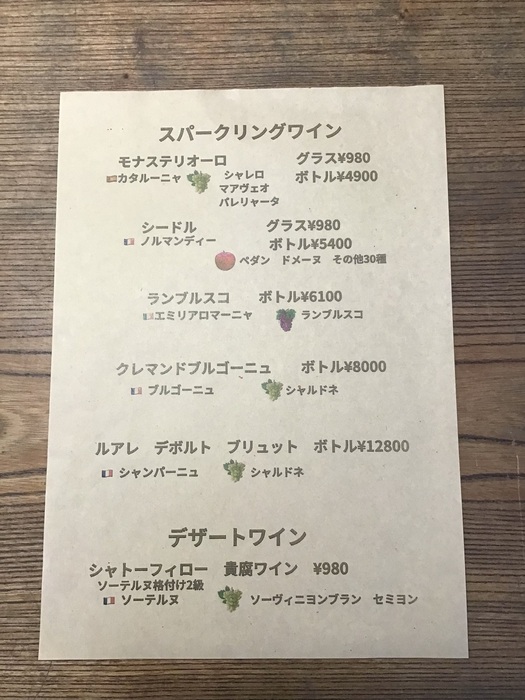 スパークリングワイン
モナステリオーロ グラス¥980
カタルーニャ シャレロ ボトル¥4900
マアヴェオ
パレリャータ
シードル グラス¥980
ノルマンディー ボトル¥5400
ペダン ドメーヌ その他30種
ランブルスコ ボトル¥6100
エミリアロマーニャ ランブルスコ
クレマンドブルゴーニュ ボトル¥8000
ブルゴーニュ シャルドネ
ルアレ デボルト ブリュット ボトル¥12800
シャンパーニュ シャルドネ
デザートワイン
シャトーフィロー 貴腐ワイン ¥980
ソーテルヌ格付け2級
ソーテルヌ ソーヴィニヨンブラン セミヨン